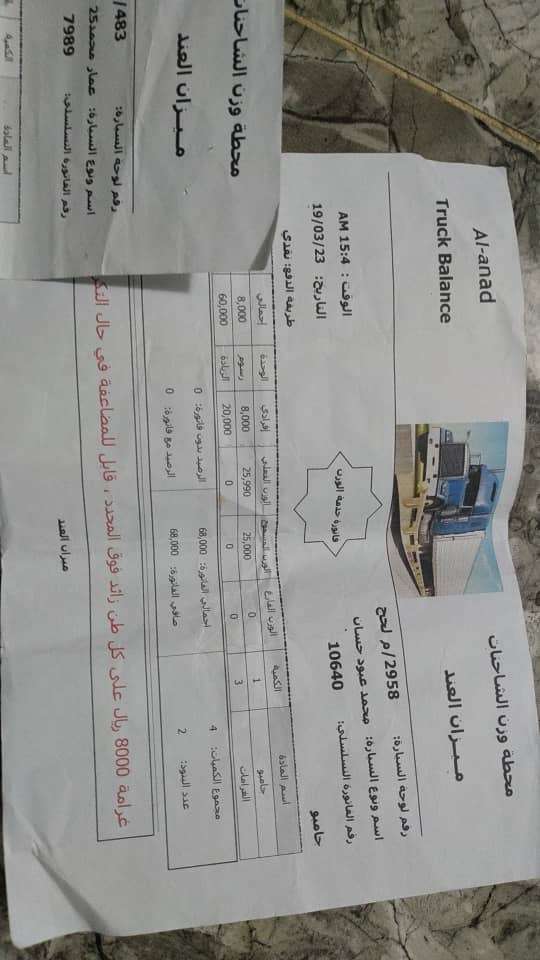 Al-anad
Truck Balance
محطة وزن الشاحنات
ميزان العند
رقم لوحة السيارة: 2958/م لحج
اسم ونوع السيارة: محمد عبود حسان
رقم الفاتورة التسلسلي: 10640
حامبو
فاتورة خدمة الوزن
الوقت : 15:4 AM
التاريخ: 19/03/23
طريقة الدفع: نقدي
اسم المادة الكمية الوزن الفارغ الوزن المسموح الوزن الفعلي إفرادي الوحدة إجمالي
حامبو 1 0 25,000 25,990 8,000 رسوم 8,000
الغرامات 3 0 0 0 20,000 الزيادة 60,000
مجموع الكميات: 4 إجمالي الفاتورة: 68,000 الرصيد بدون فاتورة: 0
عدد البنود: 2 صافي الفاتورة: 68,000 الرصيد مع فاتورة: 0
غرامة 8000 ريال على كل طن زائد فوق المحدد ، قابل للمضاعفة في حال
ميزان العند
محطة وزن الشاحنات
ميزان العند
رقم لوحة السيارة: 483/
اسم ونوع السيارة: عمار محمد25
رقم الفاتورة التسلسلي: 7989
اسم المادة الكمية